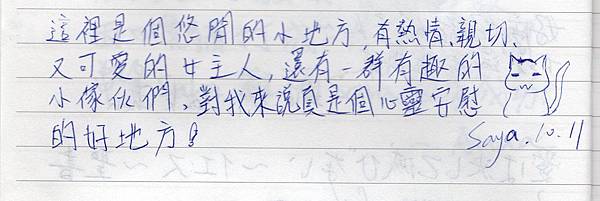 這裡是個悠閒的小地方,有熱情、親切、
又可愛的女主人,還有一群有趣的
小傢伙們、對我來說真是個心靈安慰
的好地方!
Saya.10.11